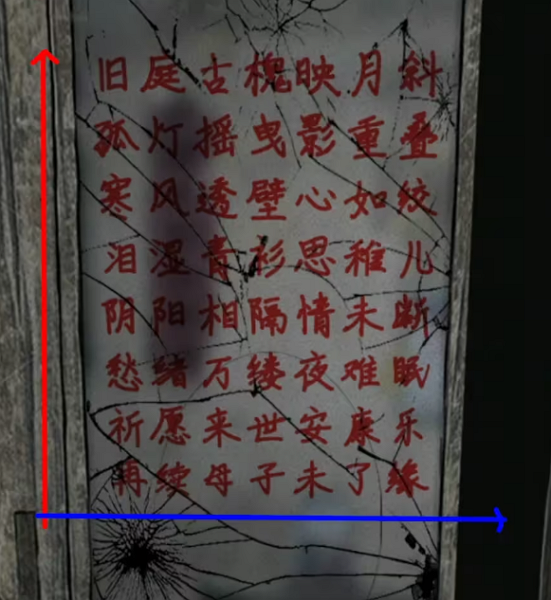 旧庭古槐映月斜
孤灯摇曳影重叠
寒风透壁心如绞
泪湿青衫思稚儿
阴阳相隔情未断
愁绪万缕夜难眠
祈愿来世安康乐
再续母子未了缘